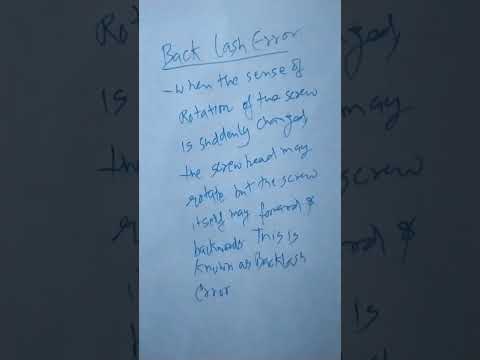 Back Lash Error
- When the sense of
Rotation of the screw
is suddenly changed,
the screw head may
rotate but the screw
itself may forward &
backwards This is
known as Backlash
Error